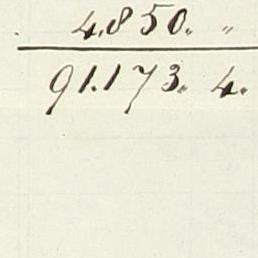 4.850. "
91.173. 4.